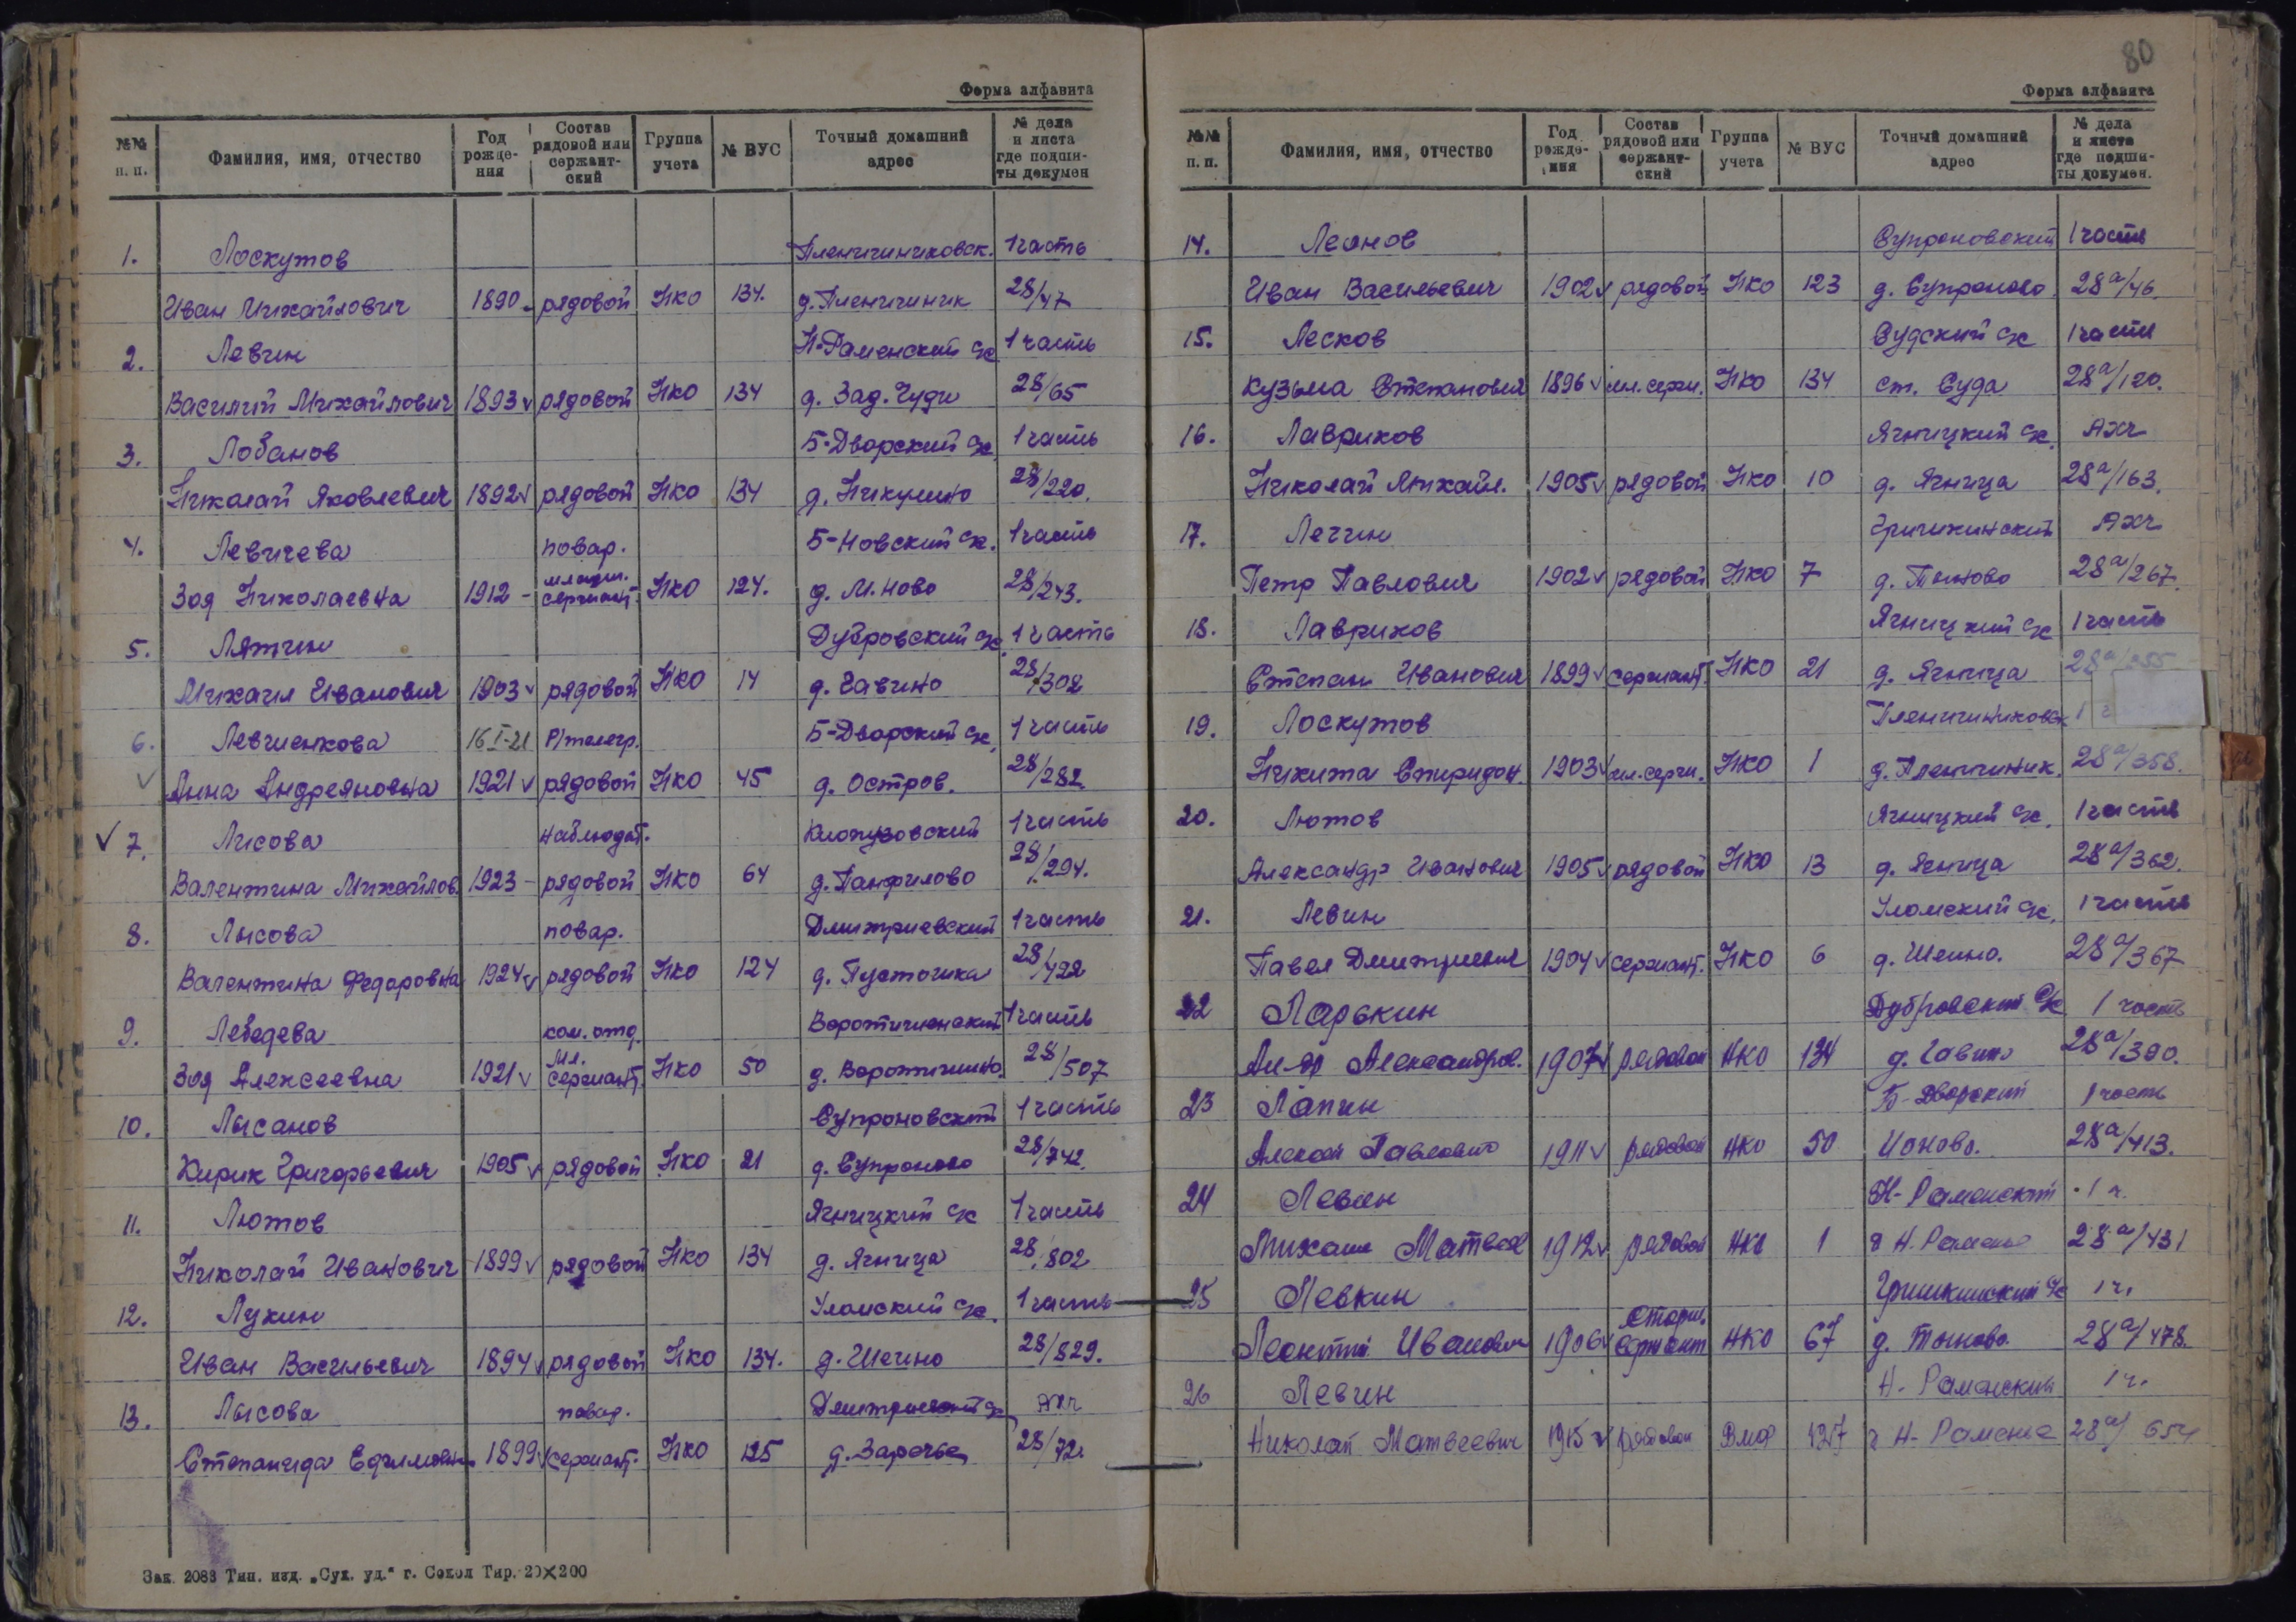 Форма алфавита
№№ п. п. Фамилия, имя, отчество Год рожде-ния Состав рядовой или сержант-ский Группа учета № ВУС Точный домашний адрес № дела и листа где подши-ты докумен
1. Лоскутов Пленишниковск. 1 часть
Иван Михайлович 1890 рядовой НКО 134. д. Пленишник 28/47
2. Левин Н-Раменский с/с 1 часть
Василий Михайлович 1893 v рядовой НКО 134 д. Зад. Чуди 28/65
3. Лобанов Б-Дворский с/с 1 часть
Николай Яковлевич 1892 v рядовой НКО 134 д. Никулино 28/220.
4. Левичева повар. Б-Новский с/с. 1 часть
Зоя Николаевна 1912 - младш. сержант. НКО 124. д. М. Ново 28/243.
5. Лятин Дубровский с/с. 1 часть
Михаил Иванович 1903 v рядовой НКО 14 д. Гавино 28/302
6. Левшенкова 16 I-21 Р/телегр. Б-Дворский с/с, 1 часть
v Анна Андреяновна 1921 v рядовой НКО 45 д. Остров. 28/282.
v 7. Лисова наблюдат. Клопузовский 1 часть
Валентина Михайлов. 1923 - рядовой НКО 64 д. Панфилово 28/294.
8. Лысова повар. Дмитриевский 1 часть
Валентина Федоровна 1924 v рядовой НКО 124 д. Пусточика 28/422
9. Лебедева ком. отд. Воротишенский 1 часть
Зоя Алексеевна 1921 v Мл. сержант. НКО 50 д. Воротишино. 28/507
10. Лысанов Супроновский 1 часть
Кирик Григорьевич 1905 v рядовой НКО 21 д. Супроново 28/742.
11. Лютов Ягницкий с/с 1 часть
Николай Иванович 1899 v рядовой НКО 134 д. Ягница 28/802
12. Лукин Уломский с/с. 1 часть
Иван Васильевич 1894 v рядовой НКО 134. д. Шеино 28/829.
13. Лысова повар. Дмитриевский с/с АХЧ
Степанида Ефимовн. 1899 v сержант. НКО 125 д. Заречье 28/72.
Зак. 2083 Тип. изд. „Сух. уд.“ г. Сокол Тир. 20×200
80
Форма алфавита
№№ п. п. Фамилия, имя, отчество Год рожде-ния Состав рядовой или сержант-ский Группа учета № ВУС Точный домашний адрес № дела и листа где подши-ты докумен.
14. Леонов Супроновский 1 часть
Иван Васильевич 1902 v рядовой НКО 123 д. Супроново. 28а/46.
15. Лесков Судский с/с 1 часть
Кузьма Степанович 1896 v мл. серж. НКО 134 ст. Суда 28а/120.
16. Лавриков Ягницкий с/с. АХЧ
Николай Михайл. 1905 v рядовой НКО 10 д. Ягница 28а/163.
17. Легин Гришкинский АХЧ
Петр Павлович 1902 v рядовой НКО 7 д. Тыново 28а/267.
18. Лавриков Ягницкий с/с 1 часть
Степан Иванович 1899 v сержант. НКО 21 д. Ягница 28а/355
19. Лоскутов Пленишниковск 1
Никита Спиридон. 1903 v мл. серж. НКО 1 д. Пленишник. 28а/358.
20. Лютов Ягницкий с/с. 1 часть
Александр Иванович 1905 v рядовой НКО 13 д. Ягница 28а/362.
21. Левин Уломский с/с. 1 часть
Павел Дмитриевич 1904 v сержант. НКО 6 д. Шеино. 28а/367
22 Ларькин Дубровский с/с 1 часть
Ал-др Александров. 1907 v рядовой НКО 134 д. Гавино 28а/390.
23 Лапин Б-Дворский 1 часть
Алексей Павлович 1911 v рядовой НКО 50 Ионово. 28а/413.
24 Левин Н-Раменский 1 ч.
Михаил Матвеев 1912 v рядовой НКО 1 д Н. Раменье 28а/431
25 Левкин Гришкинский с/с 1 ч.
Леонтий Иванович 1906 v Старш. Сержант НКО 67 д. Тыново. 28а/478.
26 Левин Н-Раменский 1 ч.
Николай Матвеевич 1915 v рядовой Вмф Н-Раменье 28а/654